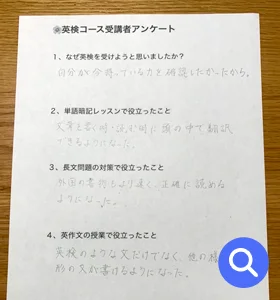 ㊙英検コース受講者アンケート
1、なぜ英検を受けようと思いましたか？
自分が今持っている力を確認したかったから。
2、単語暗記レッスンで役立ったこと
文章を書く時・読む時に頭の中で翻訳
できるようになった。
3、長文問題の対策で役立ったこと
外国の書物をより速く、正確に読める
ようになった。
4、英作文の授業で役立ったこと
英検のような文だけでなく、他の
形の文が書けるようになった。